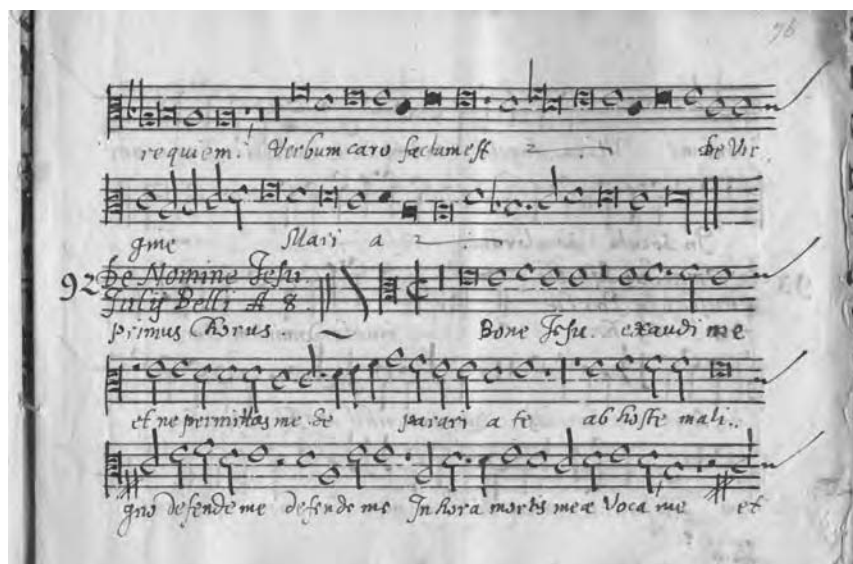 76
requiem. Verbum caro factum est de Vir
gine Mari a
92 De Nomine Jesu
Julij Belli A 8.
primus Chorus Bone Jesu. exaudi me
et ne permittas me de parari a te ab hoste mali..
gno defende me defende me In hora mortis meæ Voca me et